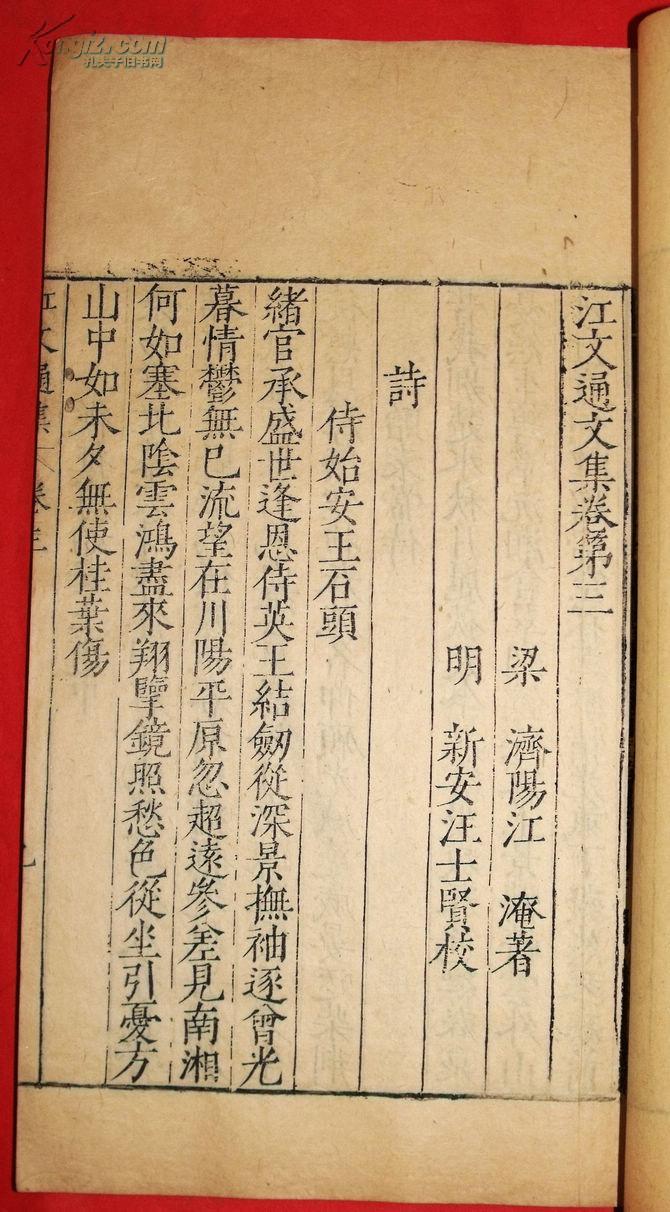 江文通文集卷第三
梁 濟陽江 淹著
明 新安汪士賢校
詩
侍始安王石頭
緒官承盛世逢恩侍英王結劒從深景撫袖逐曾光
暮情鬱無巳流望在川陽平原忽超遠參差見南湘
何如塞北陰雲鴻盡來翔擥鏡照愁色從坐引憂方
山中如未夕無使桂葉傷
江文通集 卷三
Kongfz.com
孔夫子旧书网